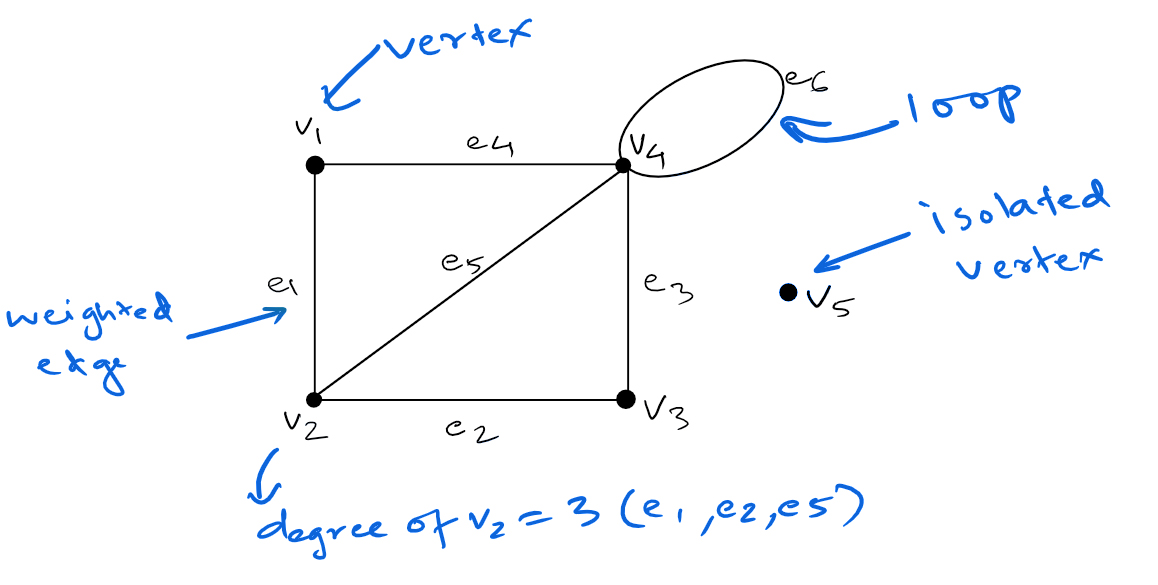 vertex
v1
e4
v4
e6
loop
isolated
vertex
e5
e1
e3
v5
weighted
edge
v2
e2
v3
degree of v2 = 3 (e1, e2, e5)